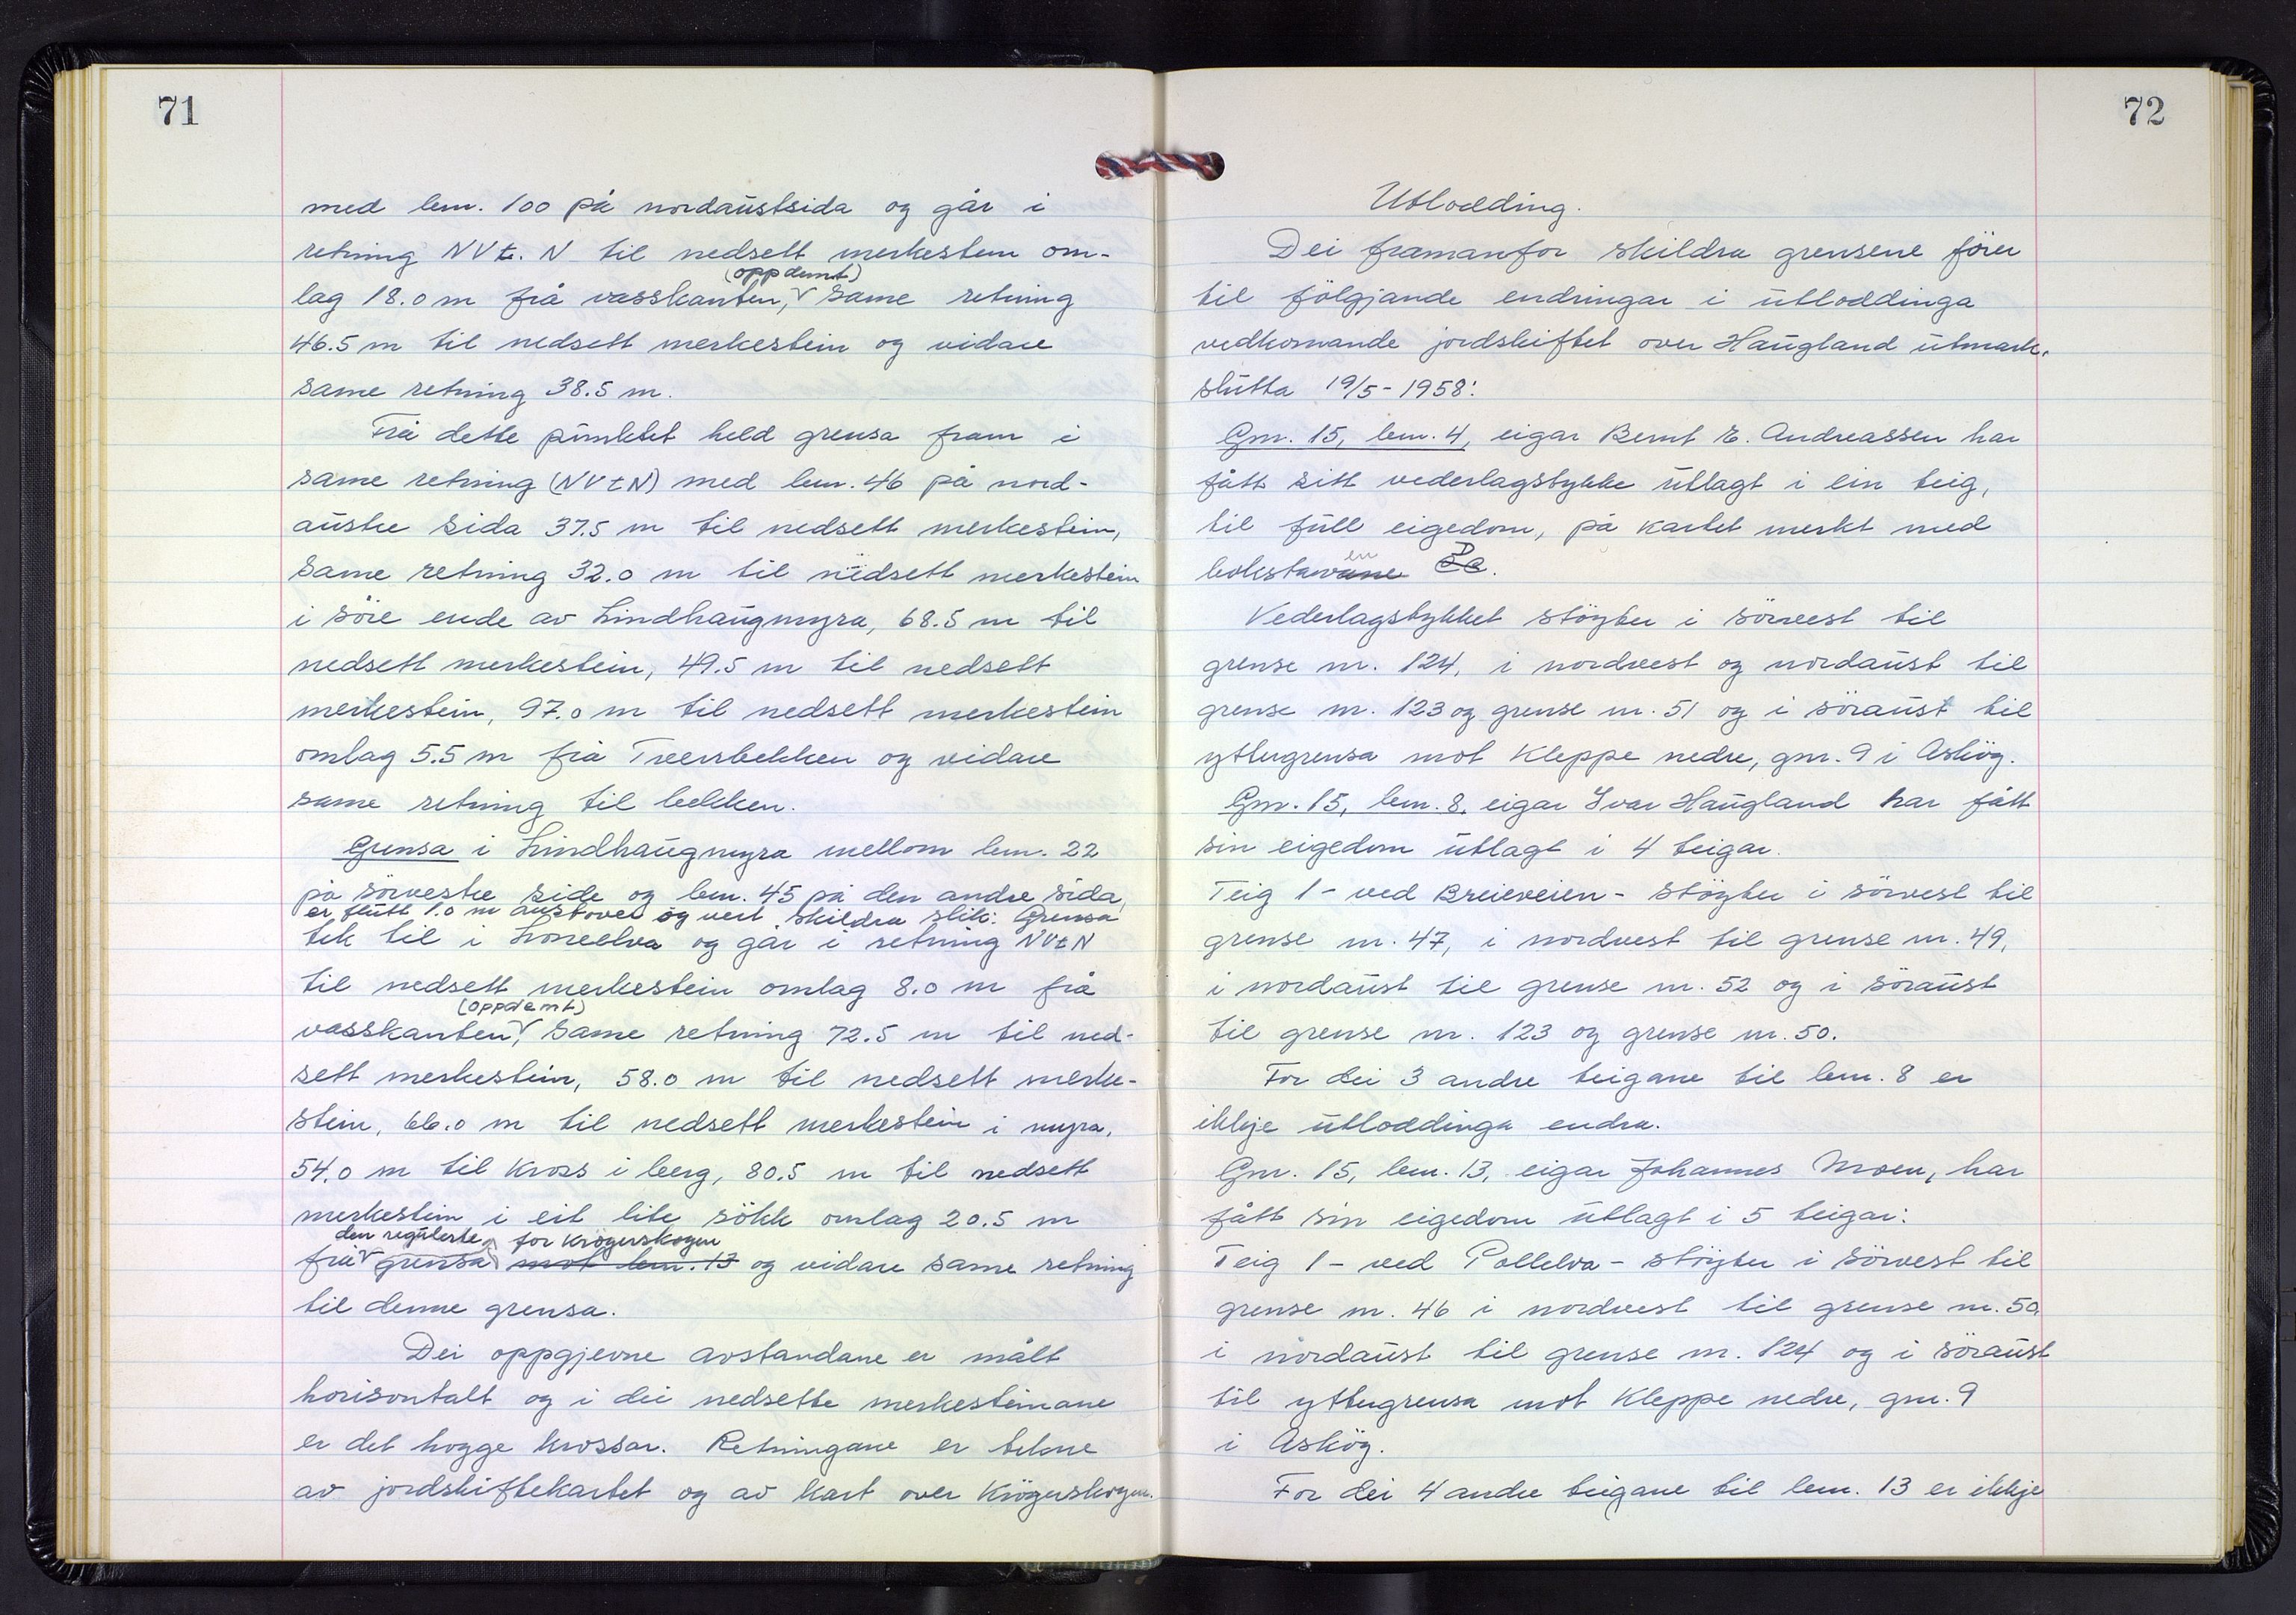 71
med bnr. 100 på nordaustsida og går i
retning NVt. N til nedsett merkestein om-
(oppdemt)
lag 18.0 m frå vasskanten, same retning
46.5 m til nedsett merkestein og vidare
same retning 38.5 m.
Frå dette punktet held grensa fram i
same retning (NVtN) med bnr. 46 på nord-
austre sida 37.5 m til nedsett merkestein,
same retning 32.0 m til nedsett merkestein
i söre ende av Lindhaugmyra, 68.5 m til
nedsett merkestein, 49.5 m til nedsett
merkestein, 97.0 m til nedsett merkestein
omlag 5.5 m frå Tverrbekken og vidare
same retning til bekken.
Grensa i Lindhaugmyra mellom bnr. 22
på sörvestre side og bnr. 45 på den andre sida,
er flutt 1.0 m austover og vert skildra slik: Grensa
tek til i Loneelva og går i retning NVtN
til nedsett merkestein omlag 8.0 m frå
(oppdemt)
vasskanten, same retning 72.5 m til ned-
sett merkestein, 58.0 m til nedsett merke-
stein, 66.0 m til nedsett merkestein i myra,
54.0 m til kross i berg, 80.5 m til nedsett
merkestein i eit lite sökk omlag 20.5 m
den regulerte for Krögerskogen
frå grensa mot bnr. 13 og vidare same retning
til denne grensa.
Dei oppgjevne avstandane er målt
horisontalt og i dei nedsette merkesteinane
er det hogge krossar. Retningane er tekne
av jordskiftekartet og av kart over Krögerskogen.
72
Utlodding.
Dei framanfor skildra grensene förer
til fölgjande endringar i utloddinga
vedkomande jordskiftet over Haugland utmark,
slutta 19/5-1958:
Gnr. 15, bnr. 4, eigar Bernt E. Andreassen har
fått sitt vederlagstykke utlagt i ein teig,
til full eigedom, på kartet merkt med
en D
bokstavane Ce.
Vederlagstykket stöyter i sörvest til
grense nr. 124, i nordvest og nordaust til
grense nr. 123 og grense nr. 51 og i söraust til
yttergrensa mot Kleppe nedre, gnr. 9 i Asköy.
Gnr. 15, bnr. 8, eigar Ivar Haugland har fått
sin eigedom utlagt i 4 teigar.
Teig 1 - ved Breieveien - stöyter i sörvest til
grense nr. 47, i nordvest til grense nr. 49,
i nordaust til grense nr. 52 og i söraust
til grense nr. 123 og grense nr. 50.
For dei 3 andre teigane til bnr. 8 er
ikkje utloddinga endra.
Gnr. 15, bnr. 13, eigar Johannes Moen, har
fått sin eigedom utlagt i 5 teigar:
Teig 1 - ved Pollelva - stöyter i sörvest til
grense nr. 46 i nordvest til grense nr. 50,
i nordaust til grense nr. 124 og i söraust
til yttergrensa mot Kleppe nedre, gnr. 9
i Asköy.
For dei 4 andre teigane til bnr. 13 er ikkje